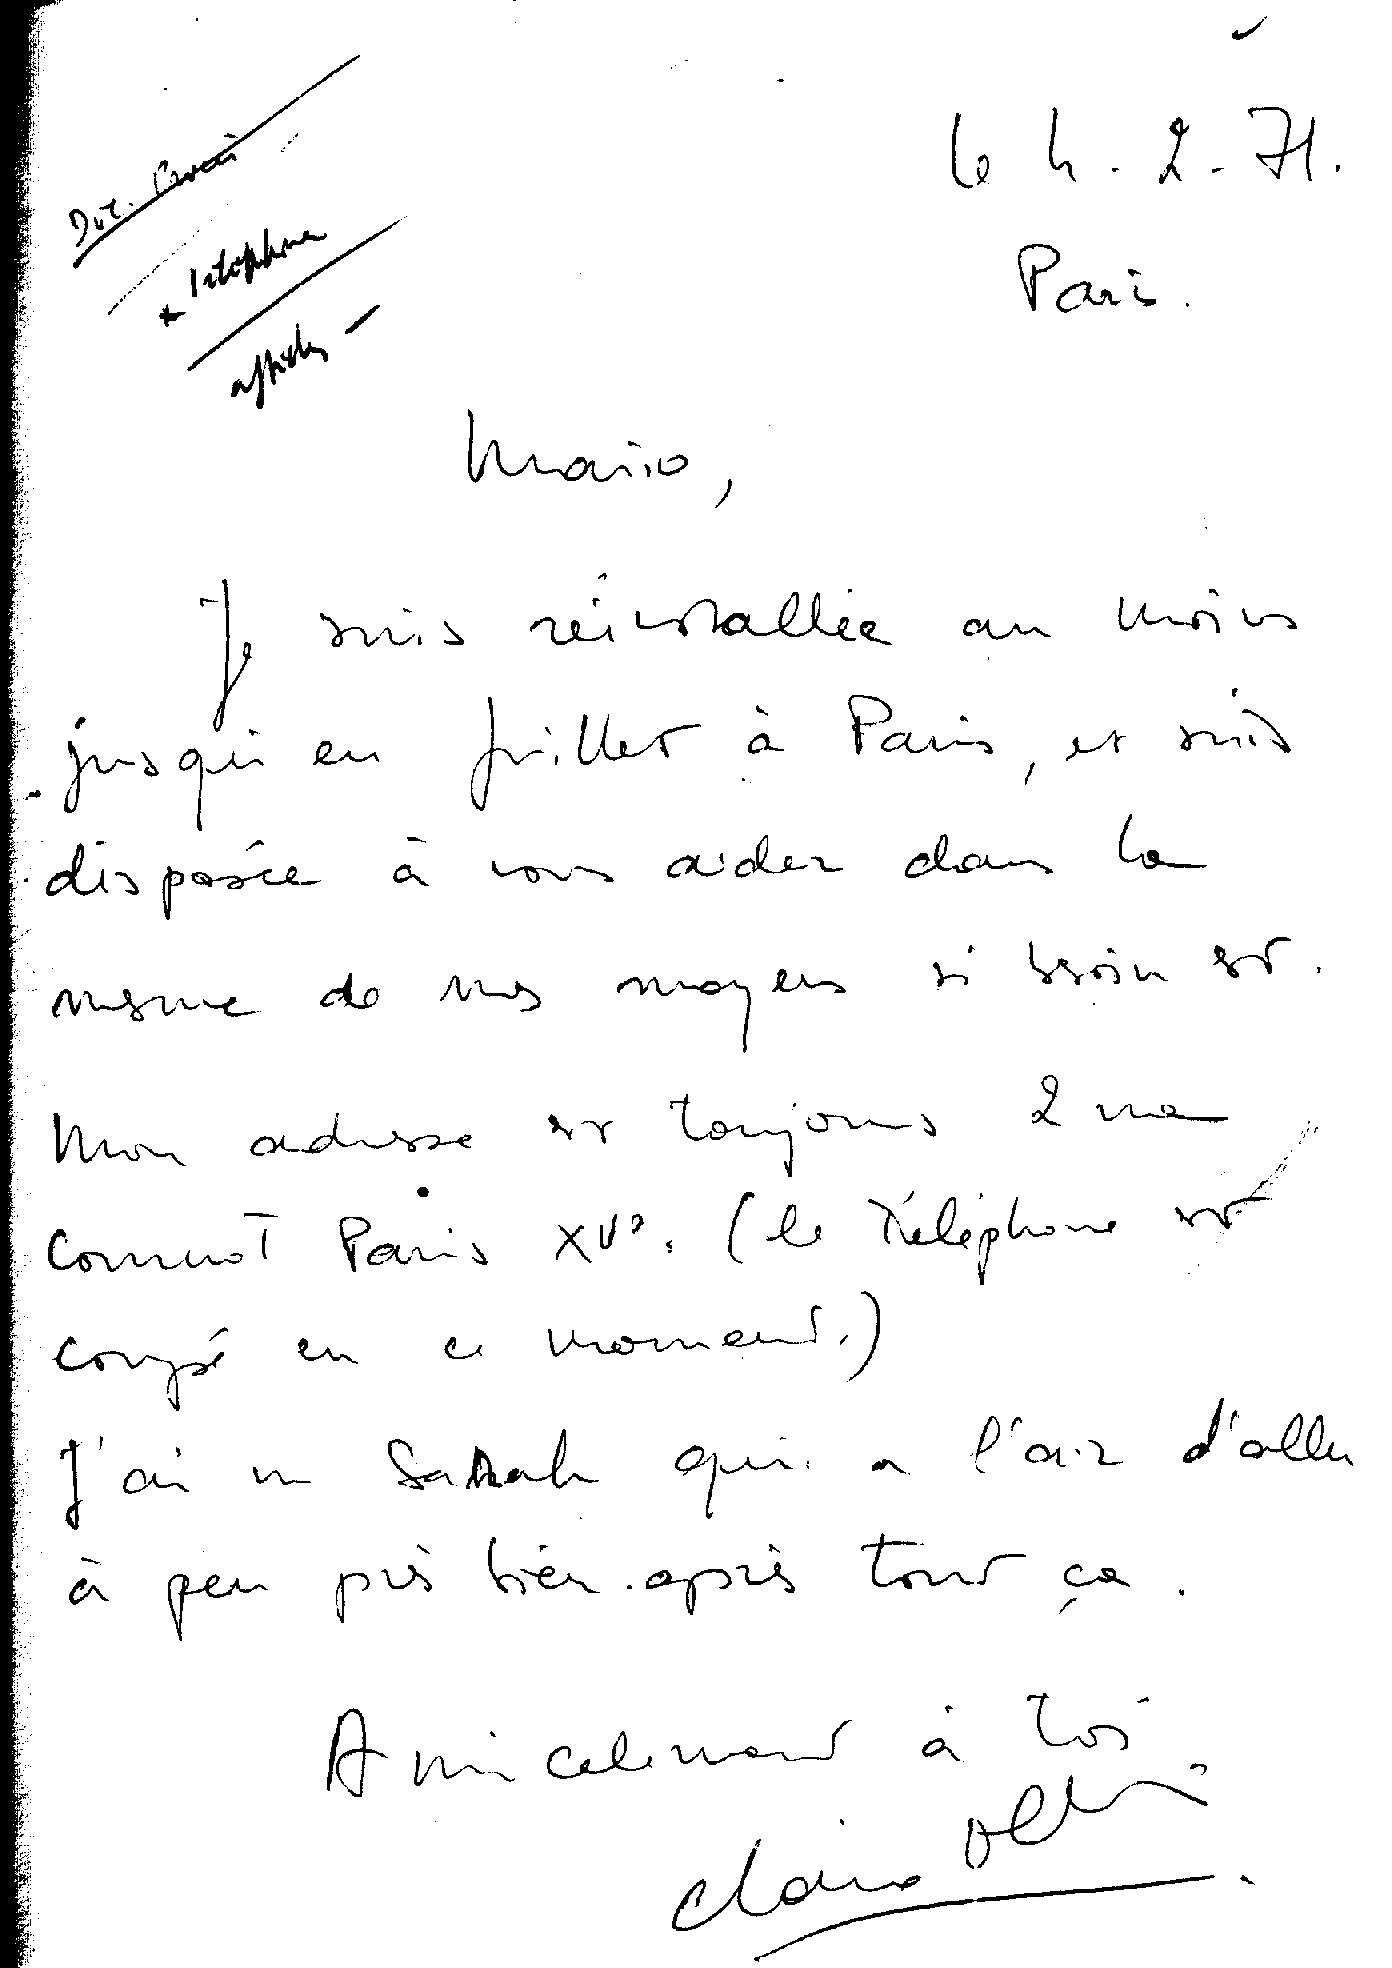 le 4.2.71.
Paris.
+ téléphone
Mario,
Je suis réinstallée au moins
jusqu'en Juillet à Paris, et suis
disposée à vous aider dans la
mesure de mes moyens si besoin est.
Mon adresse est toujours 2 rue
Connot Paris XVº. (le téléphone est
coupé en ce moment.)
J'ai vu Sarah qui a l'air d'aller
à peu près bien après tout ça.
Amicalement à toi.
Claire